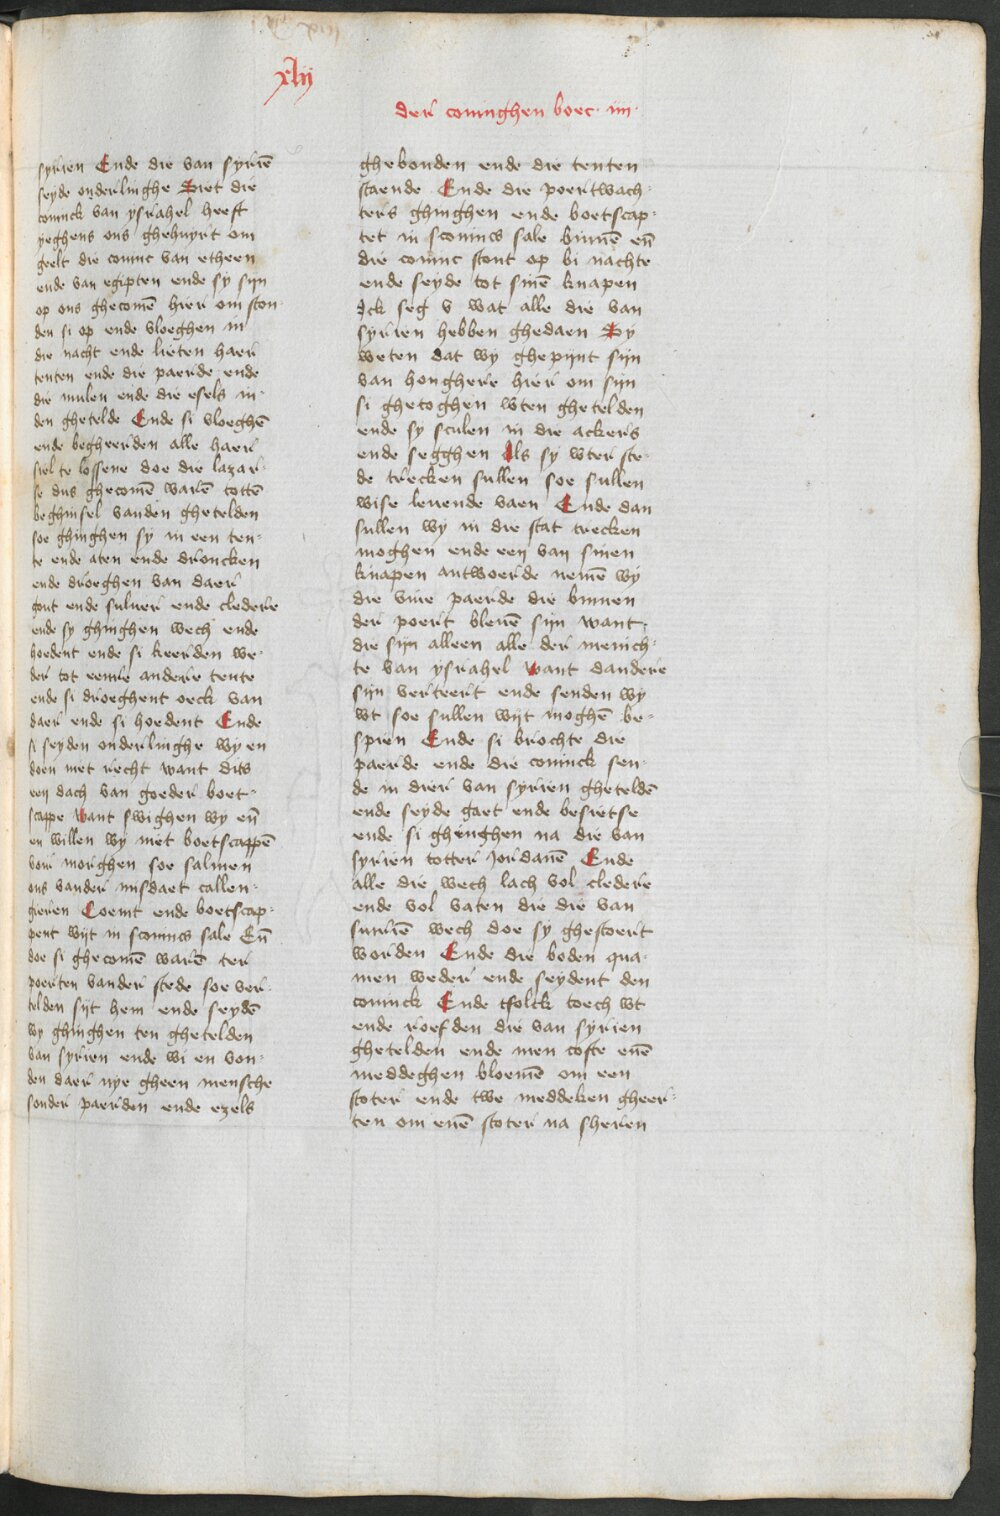 xlij
der coninghen boec · iiii ·
syrien Ende die van syriē
seyde onderlinghe Siet die
coninck van ysrahel heeft
yeghens ons ghehuyrt om
geelt die coninc van etheen
ende van egipten ende sy sijn
op ons ghecomē hier om ston-
den si op ende vloeghen in
die nacht ende lieten haer
tenten ende die paerde ende
die mulen ende die esels in-
den ghetelde Ende si vloeghē
ende begheerden alle haer
siel te lossene doe die lazar-
se dus ghecomē warē tottē
beghinsel vanden ghetelden
soe ghinghen sy in een ten-
te ende aten ende droncken
ende droeghen van daer
gout ende suluer ende cledere
ende sy ghinghen wech ende
hoedent ende si keerden we-
der tot eenre andere tente
ende si droeghent oeck van
daer ende si hoedent Ende
si seyden onderlinghe wy en
doen niet recht want dits
een dach van goeder boet-
scappe want swighen wy eñ
en willen wy niet boetscappē
voir morghen soe salmen
ons vander misdaet callen-
gieren Coemt ende boetscap-
pent wijt in sconincs sale Eñ
doe si ghecomē warē ter
poerten vander stede soe ver-
telden sijt hem ende seydē
wy ghinghen ten ghetelden
van syrien ende wi en von-
den daer nye gheen mensche
sonder paerden ende ezels
ghebonden ende die tenten
staende Ende die poertwach-
ters ghinghen ende boetscap-
tet in sconincs sale binnē eñ
die coninc stont op bi nachte
ende seyde tot sinē knapen
Jck seg v wat alle die van
syrien hebben ghedaen Sy
weten dat wy ghepijnt sijn
van honghere hier om sijn
si ghetoghen wten ghetelden
ende sy sculen in die ackers
ende segghen Als sy wter ste-
de trecken sullen soe sullen
wise leuende vaen Ende dan
sullen wy in die stat trecken
moghen ende een van sinen
knapen antwoerde nemē wy
die viue paerde die binnen
der poert bleuē sijn want-
die sijn alleen alle der menich-
te van ysrahel want dandere
sijn verteert ende senden wy
wt soe sullen wijt moghē be-
spien Ende si brochte die
paerde ende die coninck sen-
de in dier van syrien gheteldē
ende seyde gaet ende besietse
ende si ghinghen na die van
syrien totter Jordanē Ende
alle die wech lach vol cledere
ende vol vaten die die van
surrē wech doe sy ghestoert
worden Ende die boden qua-
men weder ende seydent den
coninck Ende tfolck toech wt
ende roefden die van syrien
ghetelden ende men cofte enē
meddeghen bloemē om een
stoter ende twe meddeken gheer-
ten om enē stoter na sheren